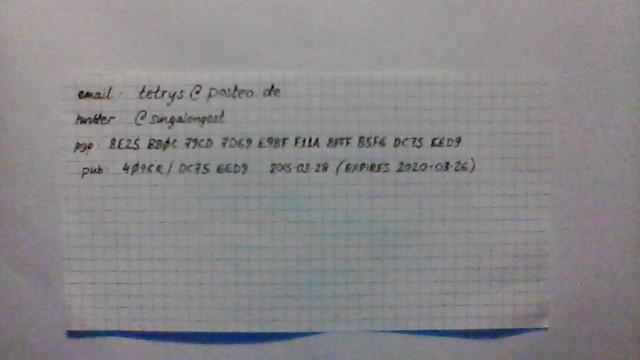 email: tetrys@posteo.de
twitter @singalongest
pgp: 8E25 BBØC 79CD 7D69 E9BF F11A 8FFF B5F6 DC75 EED9
pub: 4Ø96R/DC75 EED9 2015-03-28 (EXPIRES 2020-03-26)